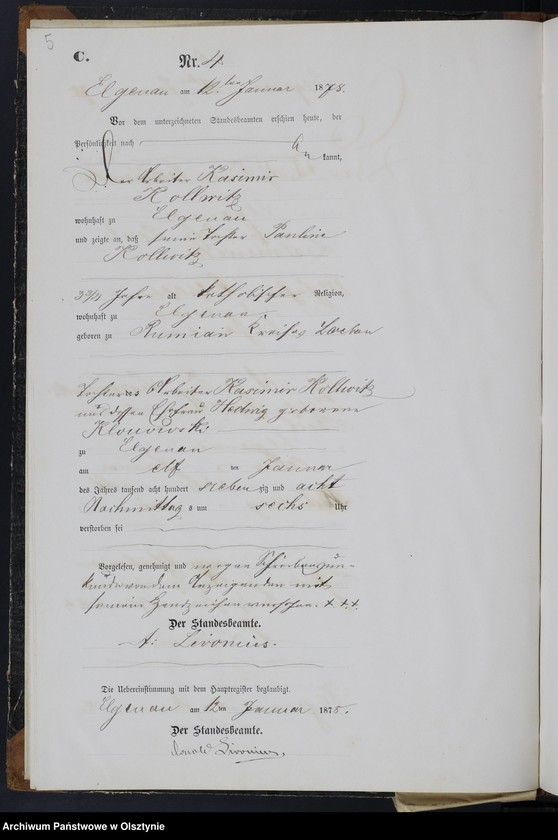 5
C.
Nr. 4.
Elgenau am 12ten Januar 1878.
Vor dem unterzeichneten Standesbeamten erschien heute, der
Persönlichkeit nach
kannt,
Der Arbeiter Kasimir
Kollwitz
wohnhaft zu Elgenau
und zeigte an, daß seine Tochter Pauline
Kollwitz
3 3/4 Jahre alt katholischer Religion,
wohnhaft zu Elgenau,
geboren zu Rumian Kreises Loebau
Tochter des Arbeiter Kasimir Kollwitz
und dessen Ehefrau Hedwig geborene
Klonowski
zu Elgenau
am elf ten Januar
des Jahres tausend acht hundert sieben zig und acht
Nachmittag s um sechs Uhr
verstorben sei
Vorgelesen, genehmigt und wegen Schreibensun-
kunde von dem Anzeigenden mit
seinem Handzeichen versehen. + + +
Der Standesbeamte.
Livonius.
Die Uebereinstimmung mit dem Hauptregister beglaubigt.
Elgenau am 12ten Januar 1878.
Der Standesbeamte.
Livonius
Archiwum Państwowe w Olsztynie